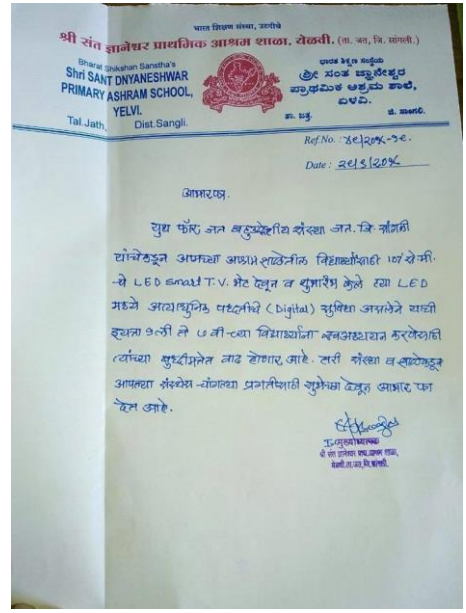 भारत शिक्षण संस्था, उटगीचे
श्री संत ज्ञानेश्वर प्राथमिक आश्रम शाळा, येळवी. (ता. जत, जि. सांगली.)
Bharat Shikshan Sanstha's
Shri SANT DNYANESHWAR
PRIMARY ASHRAM SCHOOL,
YELVI.
Tal.Jath, Dist.Sangli.
ಭಾರತ ಶಿಕ್ಷಣ ಸಂಸ್ಥೆಯ
ಶ್ರೀ ಸಂತ ಜ್ಞಾನೇಶ್ವರ
ಪ್ರಾಥಮಿಕ ಆಶ್ರಮ ಶಾಲೆ,
ಏಳವಿ.
ತಾ. ಜತ್ತ, ಜಿ. ಸಾಂಗಲಿ.
Ref.No. :
Date :
आभारपत्र.
युथ फॉर जत बहुउद्देशीय संस्था जत. जि. सांगली
यांचेकडून आमच्या आश्रम शाळेतील विद्यार्थ्यांसाठी से.मी.
चे LED smart T.V. भेट देवून व शुभारंभ केले त्या LED
मध्ये अत्याधुनिक पध्दतीचे (Digital) सुविधा असलेने याची
इयत्ता १ली ते ७ वी च्या विद्यार्थ्यांना स्वअध्ययन करणेसाठी
त्यांच्या वाढ होणार आहे. तरी संस्था व शाळेकडून
आपल्या संस्थेस चांगल्या प्रगतीसाठी शुभेच्छा देवून आभार पत्र
देत आहे.
मुख्याध्यापक
श्री संत ज्ञानेश्वर प्राथ. आश्रम शाळा,
येळवी, ता. जत, जि. सांगली.